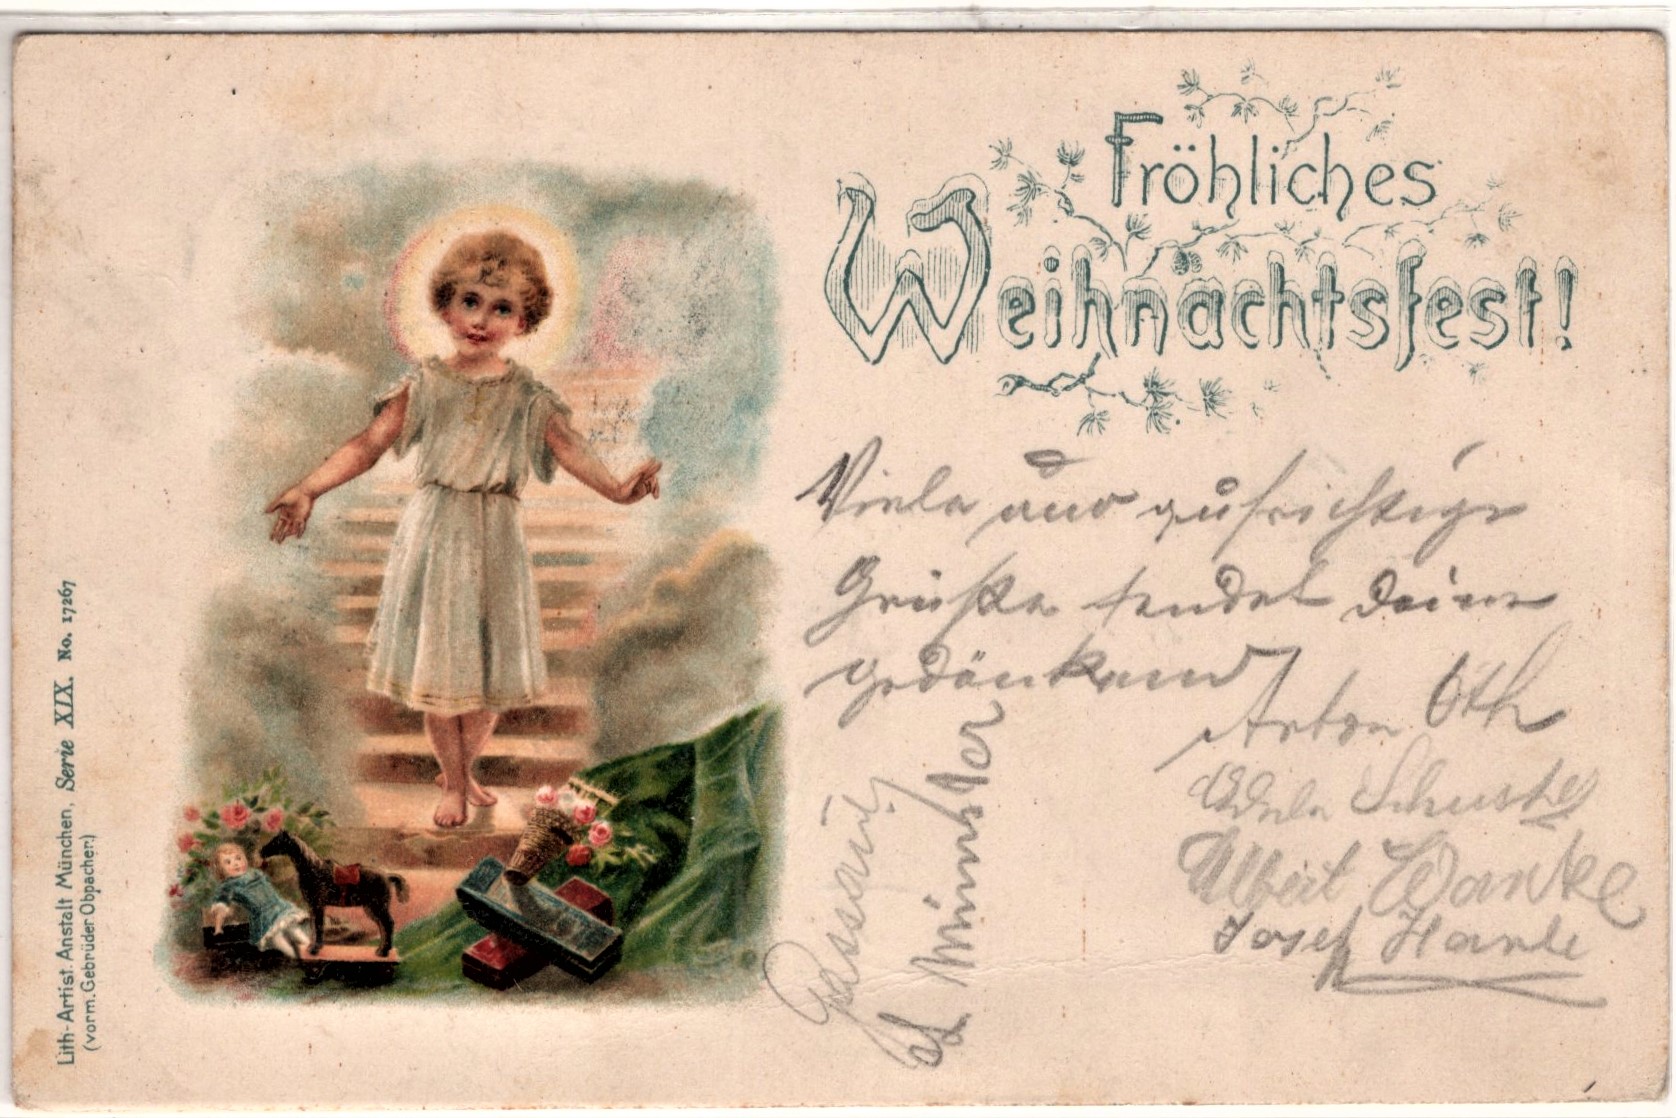 Fröhliches
Weihnachtsfest!
Viele und aufrichtige
Grüße sendet Deine
Anton Oth
Schuster
Albert Wanke
Josef Hanle
Lith-Artist. Anstalt München, Serie XIX. No. 17267
(vorm. Gebrüder Obpacher)